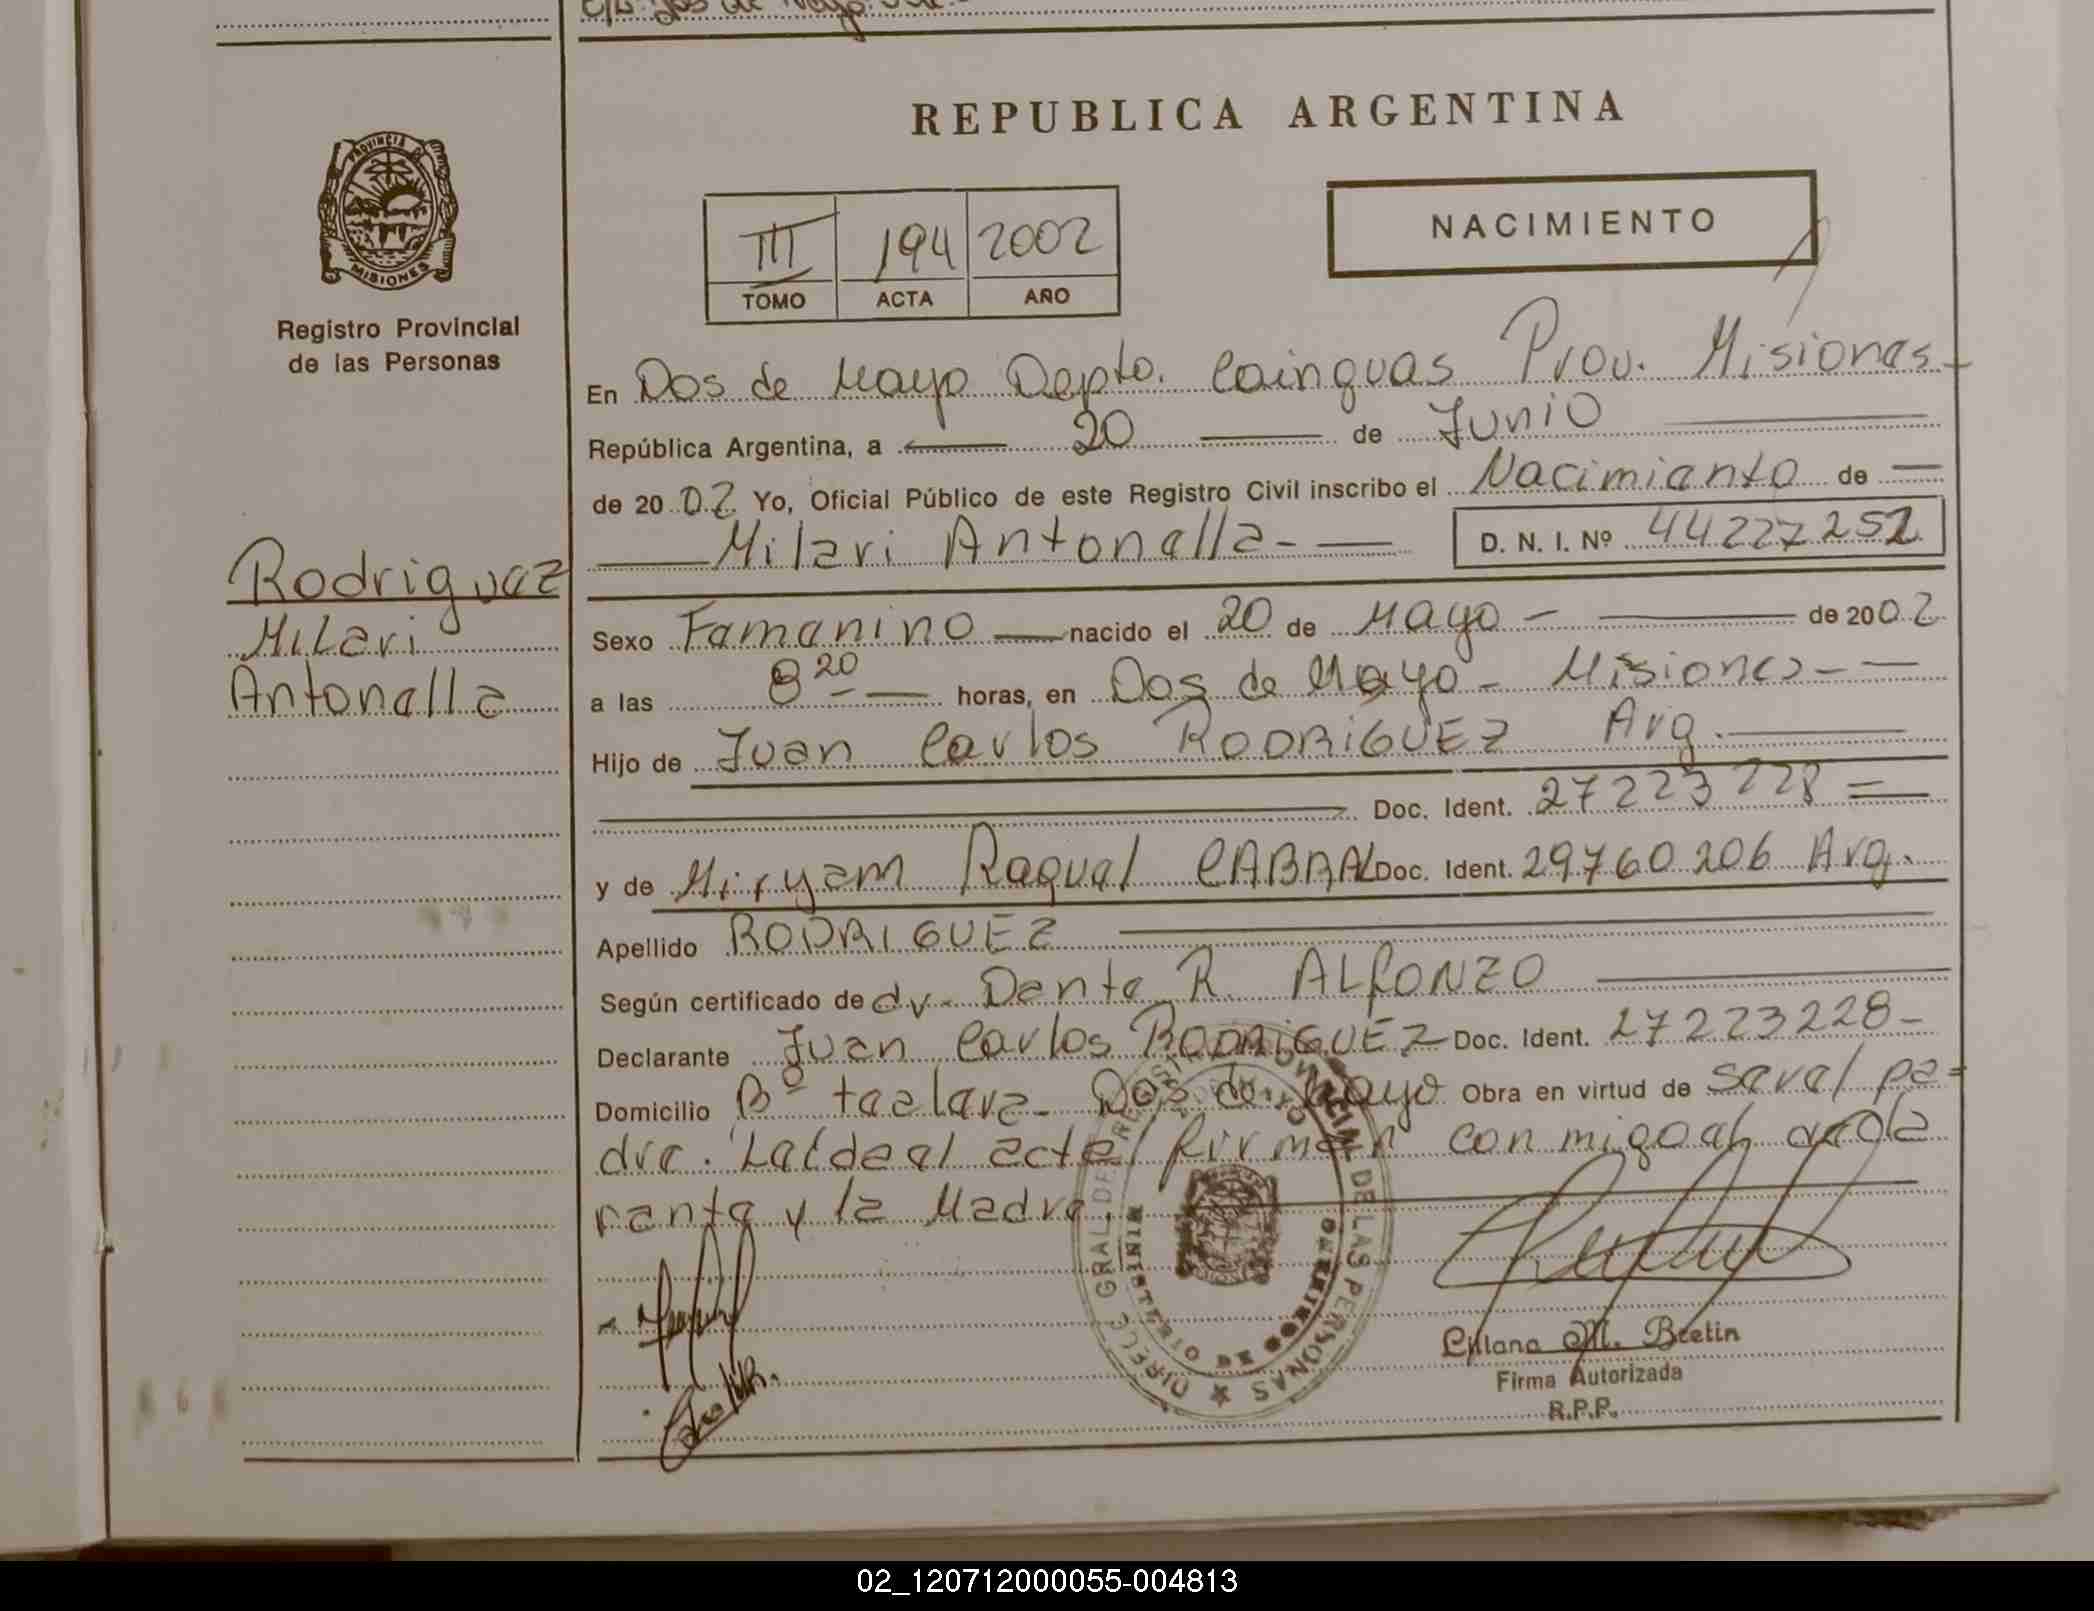 REPUBLICA ARGENTINA
PROVINCIA DE
MISIONES
Registro Provincial
de las Personas
III 194 2002
TOMO ACTA AÑO
NACIMIENTO
En Dos de Mayo Depto. Cainguas Prov. Misiones
República Argentina, a 20 de Junio
de 2002 Yo, Oficial Público de este Registro Civil inscribo el Nacimiento de
Milari Antonella D. N. I. Nº 44227252
Rodriguez
Milari
Antonella
Sexo Femenino nacido el 20 de Mayo de 2002
a las 8 20 horas, en Dos de Mayo - Misiones
Hijo de Juan Carlos RODRIGUEZ Arg.
Doc. Ident. 27223228
y de Miryam Raquel CABRAL Doc. Ident. 29760206 Arg.
Apellido RODRIGUEZ
Según certificado de dr. Dante R ALFONZO
Declarante Juan Carlos RODRIGUEZ Doc. Ident. 27223228-
Domicilio Bº Dos de Mayo Obra en virtud de ser el pa-
dre. acta firman conmigo el decla
rante y la Madre.
DE LAS PERSONAS
MINISTERIO DE GOBIERNO
M. Bretin
Firma Autorizada
R.P.P.
02_120712000055-004813